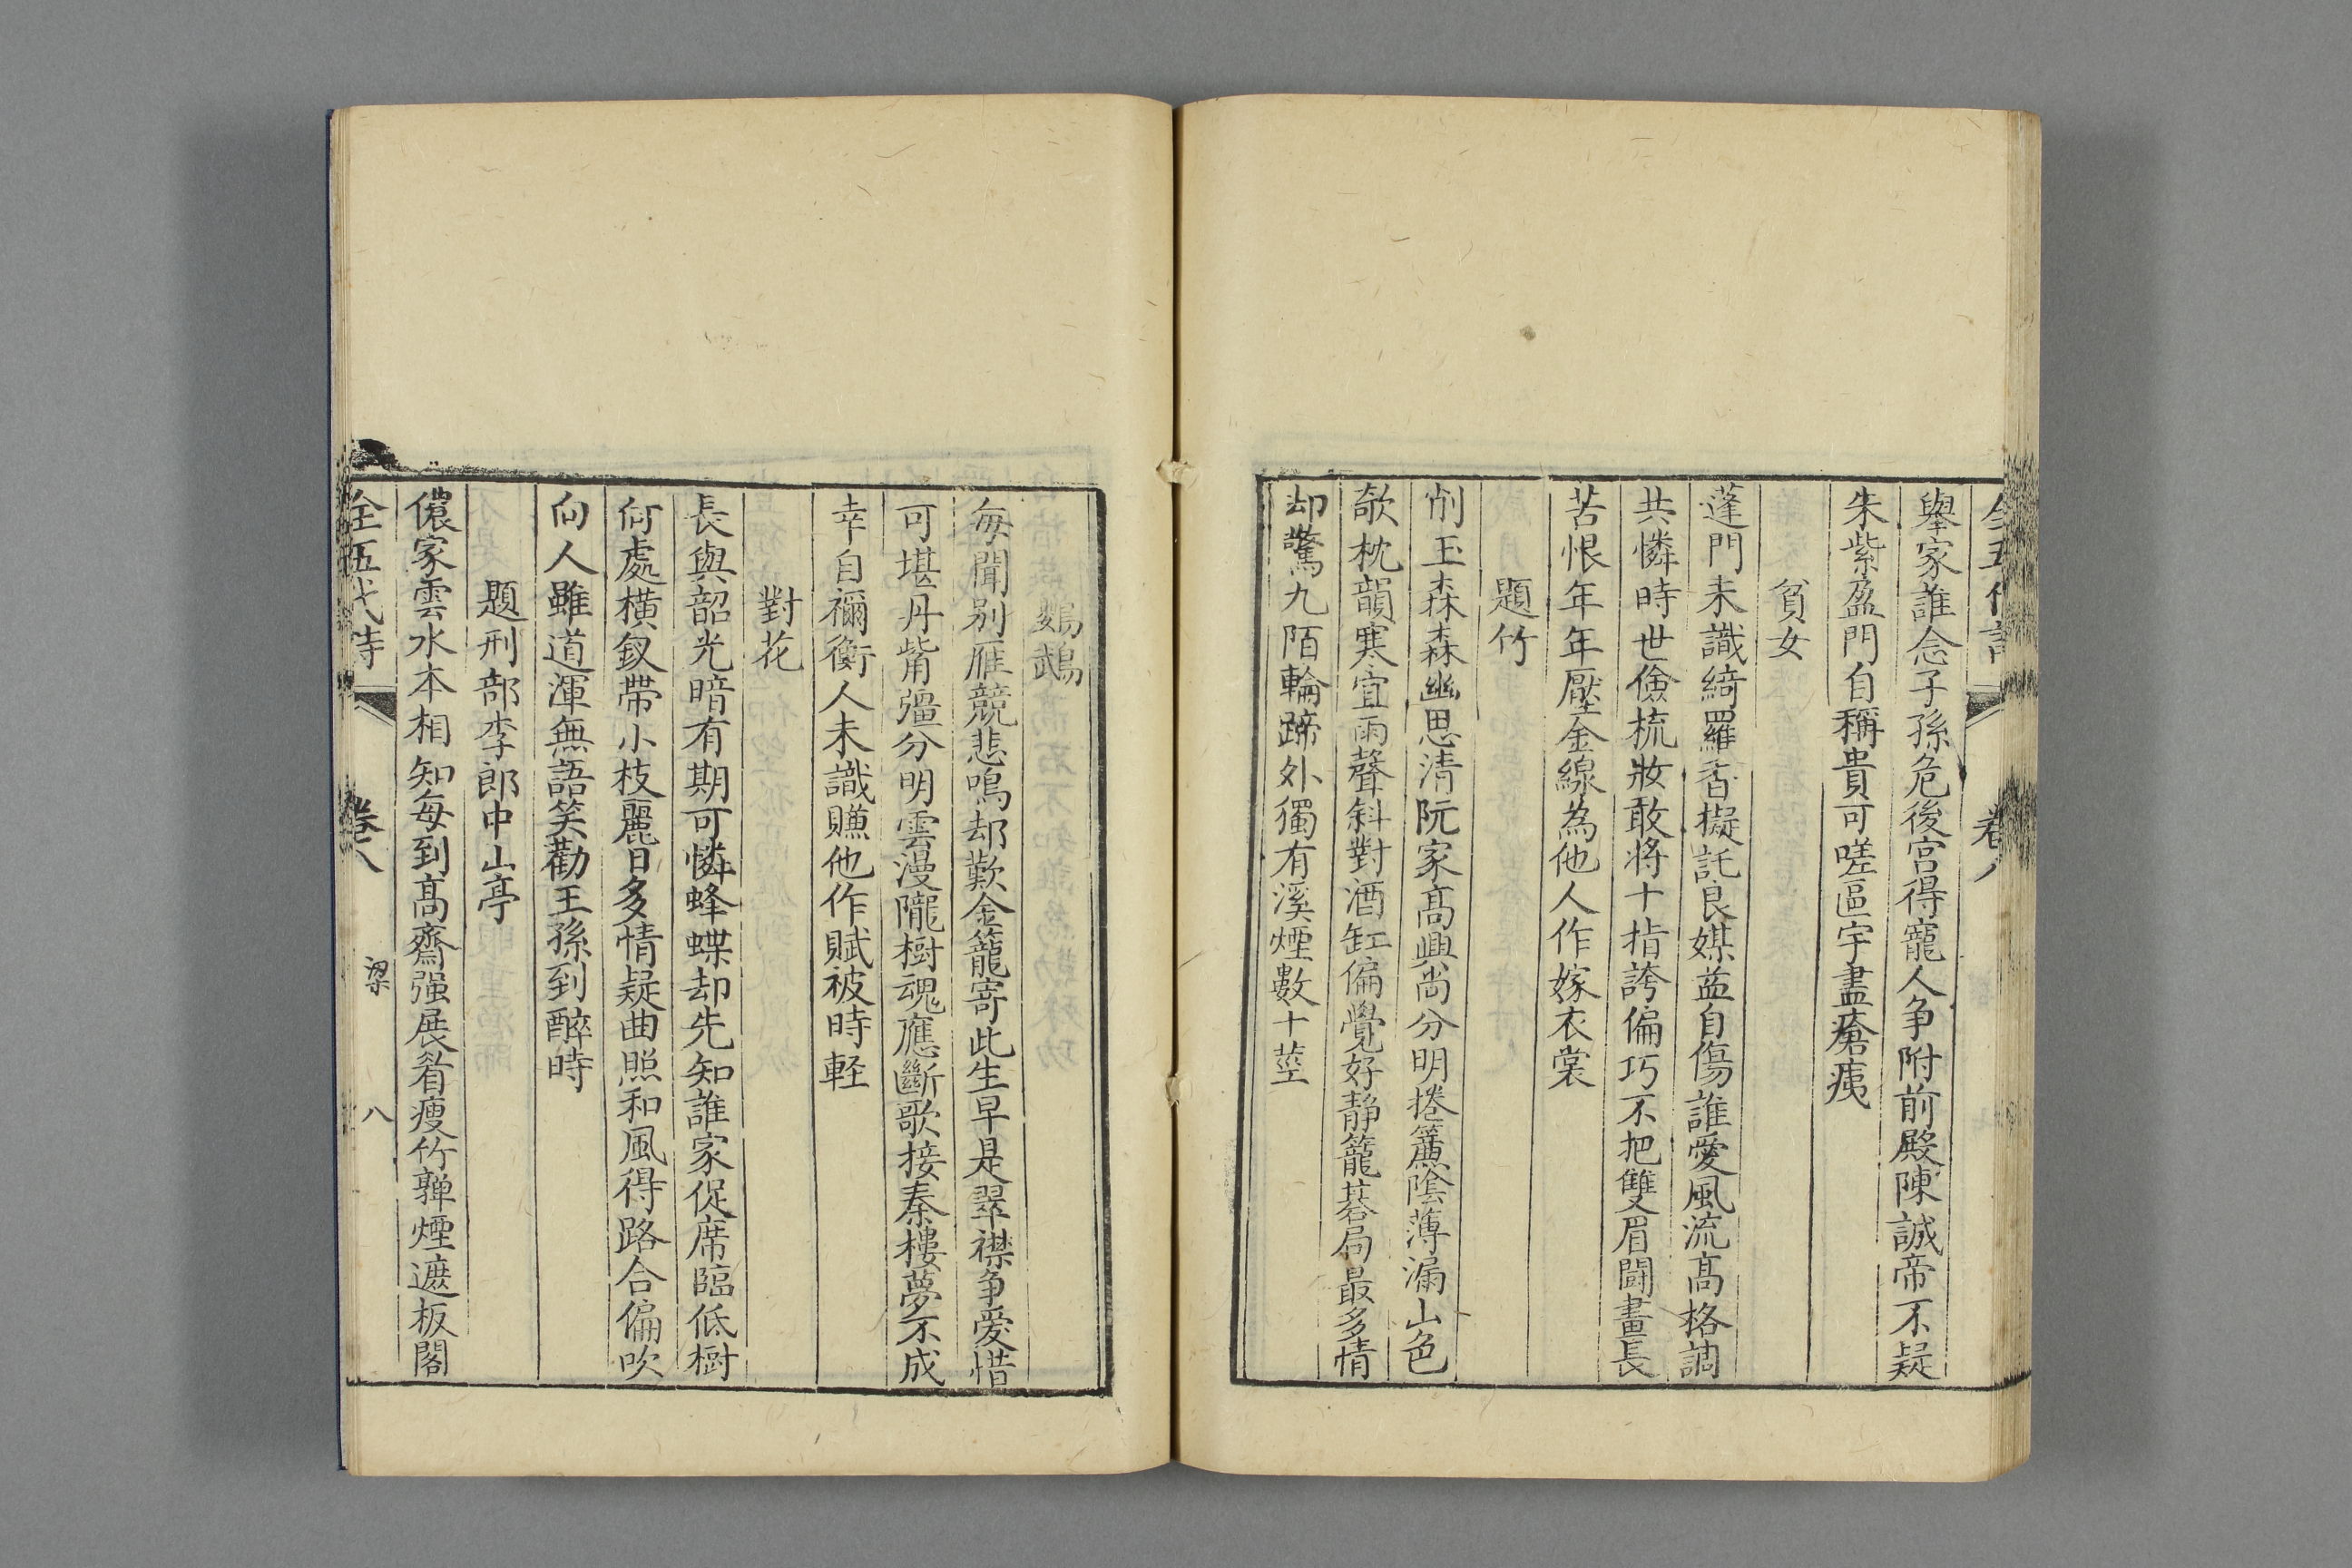 全五代詩 卷八
舉家誰念子孫危後宮得寵人爭附前殿陳誠帝不疑
朱紫盈門自稱貴可嗟區宇盡瘡痍
貧女
蓬門未識綺羅香擬託良媒益自傷誰愛風流髙格調
共憐時世儉梳妝敢將十指誇偏巧不把雙眉鬭畫長
苦恨年年壓金線為他人作嫁衣裳
題竹
削玉森森幽思清阮家髙興尚分明捲簾陰薄漏山色
欹枕韻寒宜雨聲斜對酒缸偏覺好靜籠棊局最多情
却驚九陌輪蹄外獨有溪煙數十莖
鸚鵡
每聞别雁競悲鳴却歎金籠寄此生早是翠襟爭愛惜
可堪丹觜彊分明雲漫隴樹魂應斷歌接秦樓夢不成
幸自禰衡人未識賺他作賦被時輕
對花
長與韶光暗有期可憐蜂蝶却先知誰家促席臨低樹
何處橫釵帶小枝麗日多情疑曲照和風得路合偏吹
向人雖道渾無語笑勸王孫到醉時
題刑部李郎中山亭
儂家雲水本相知每到髙齋强展眉瘦竹亸煙遮板閣
全五代詩 卷八 梁 八